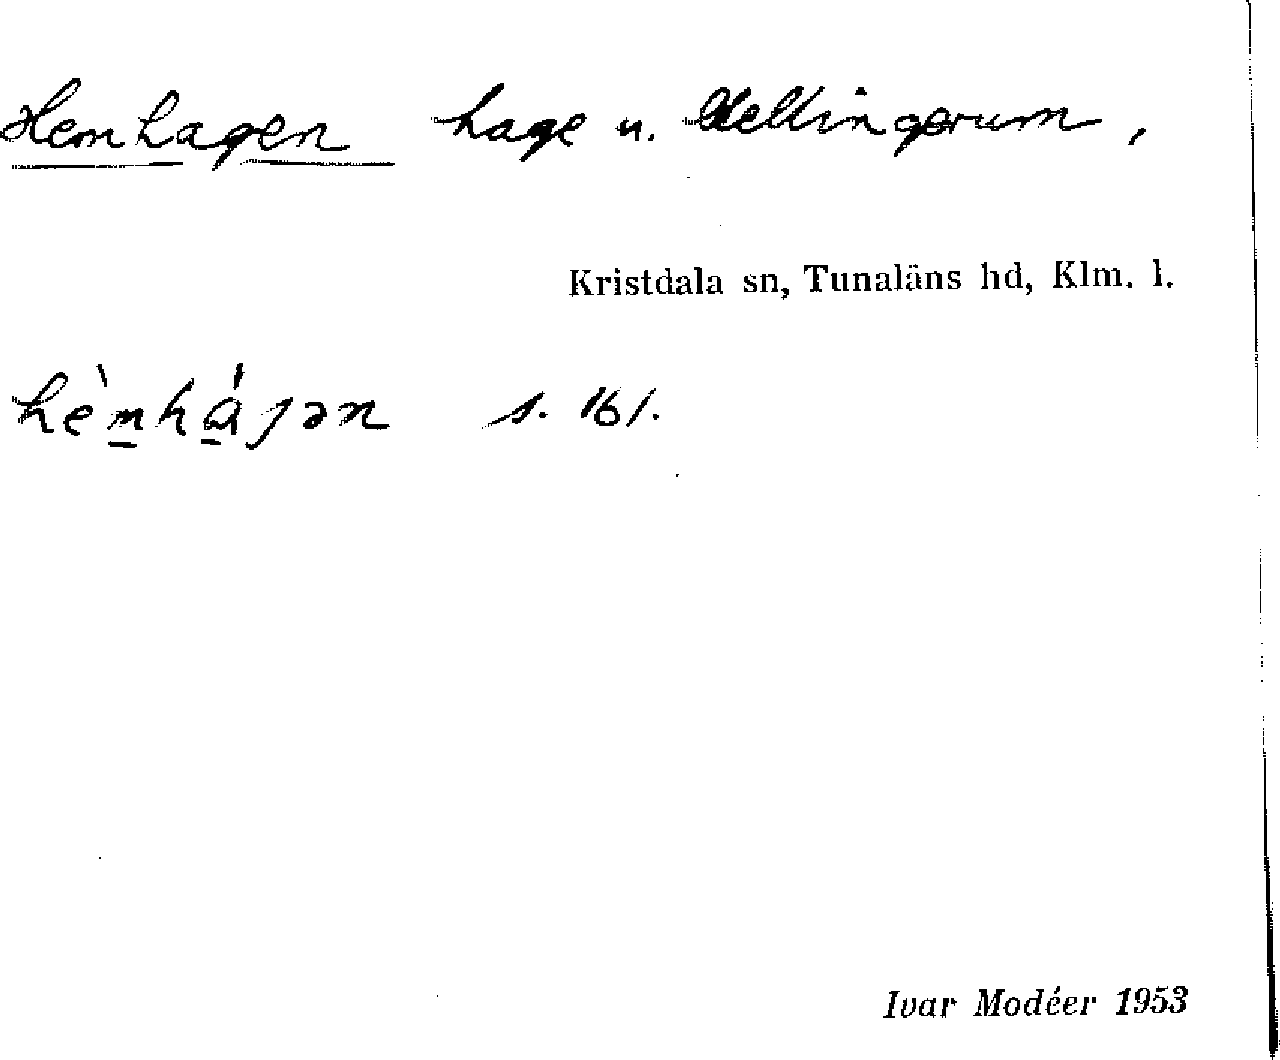 Hemhagen hage u. Kellingerum,
Kristdala sn, Tunaläns hd, Klm. l.
hèmhájən s. 161.
Ivar Modéer 1953